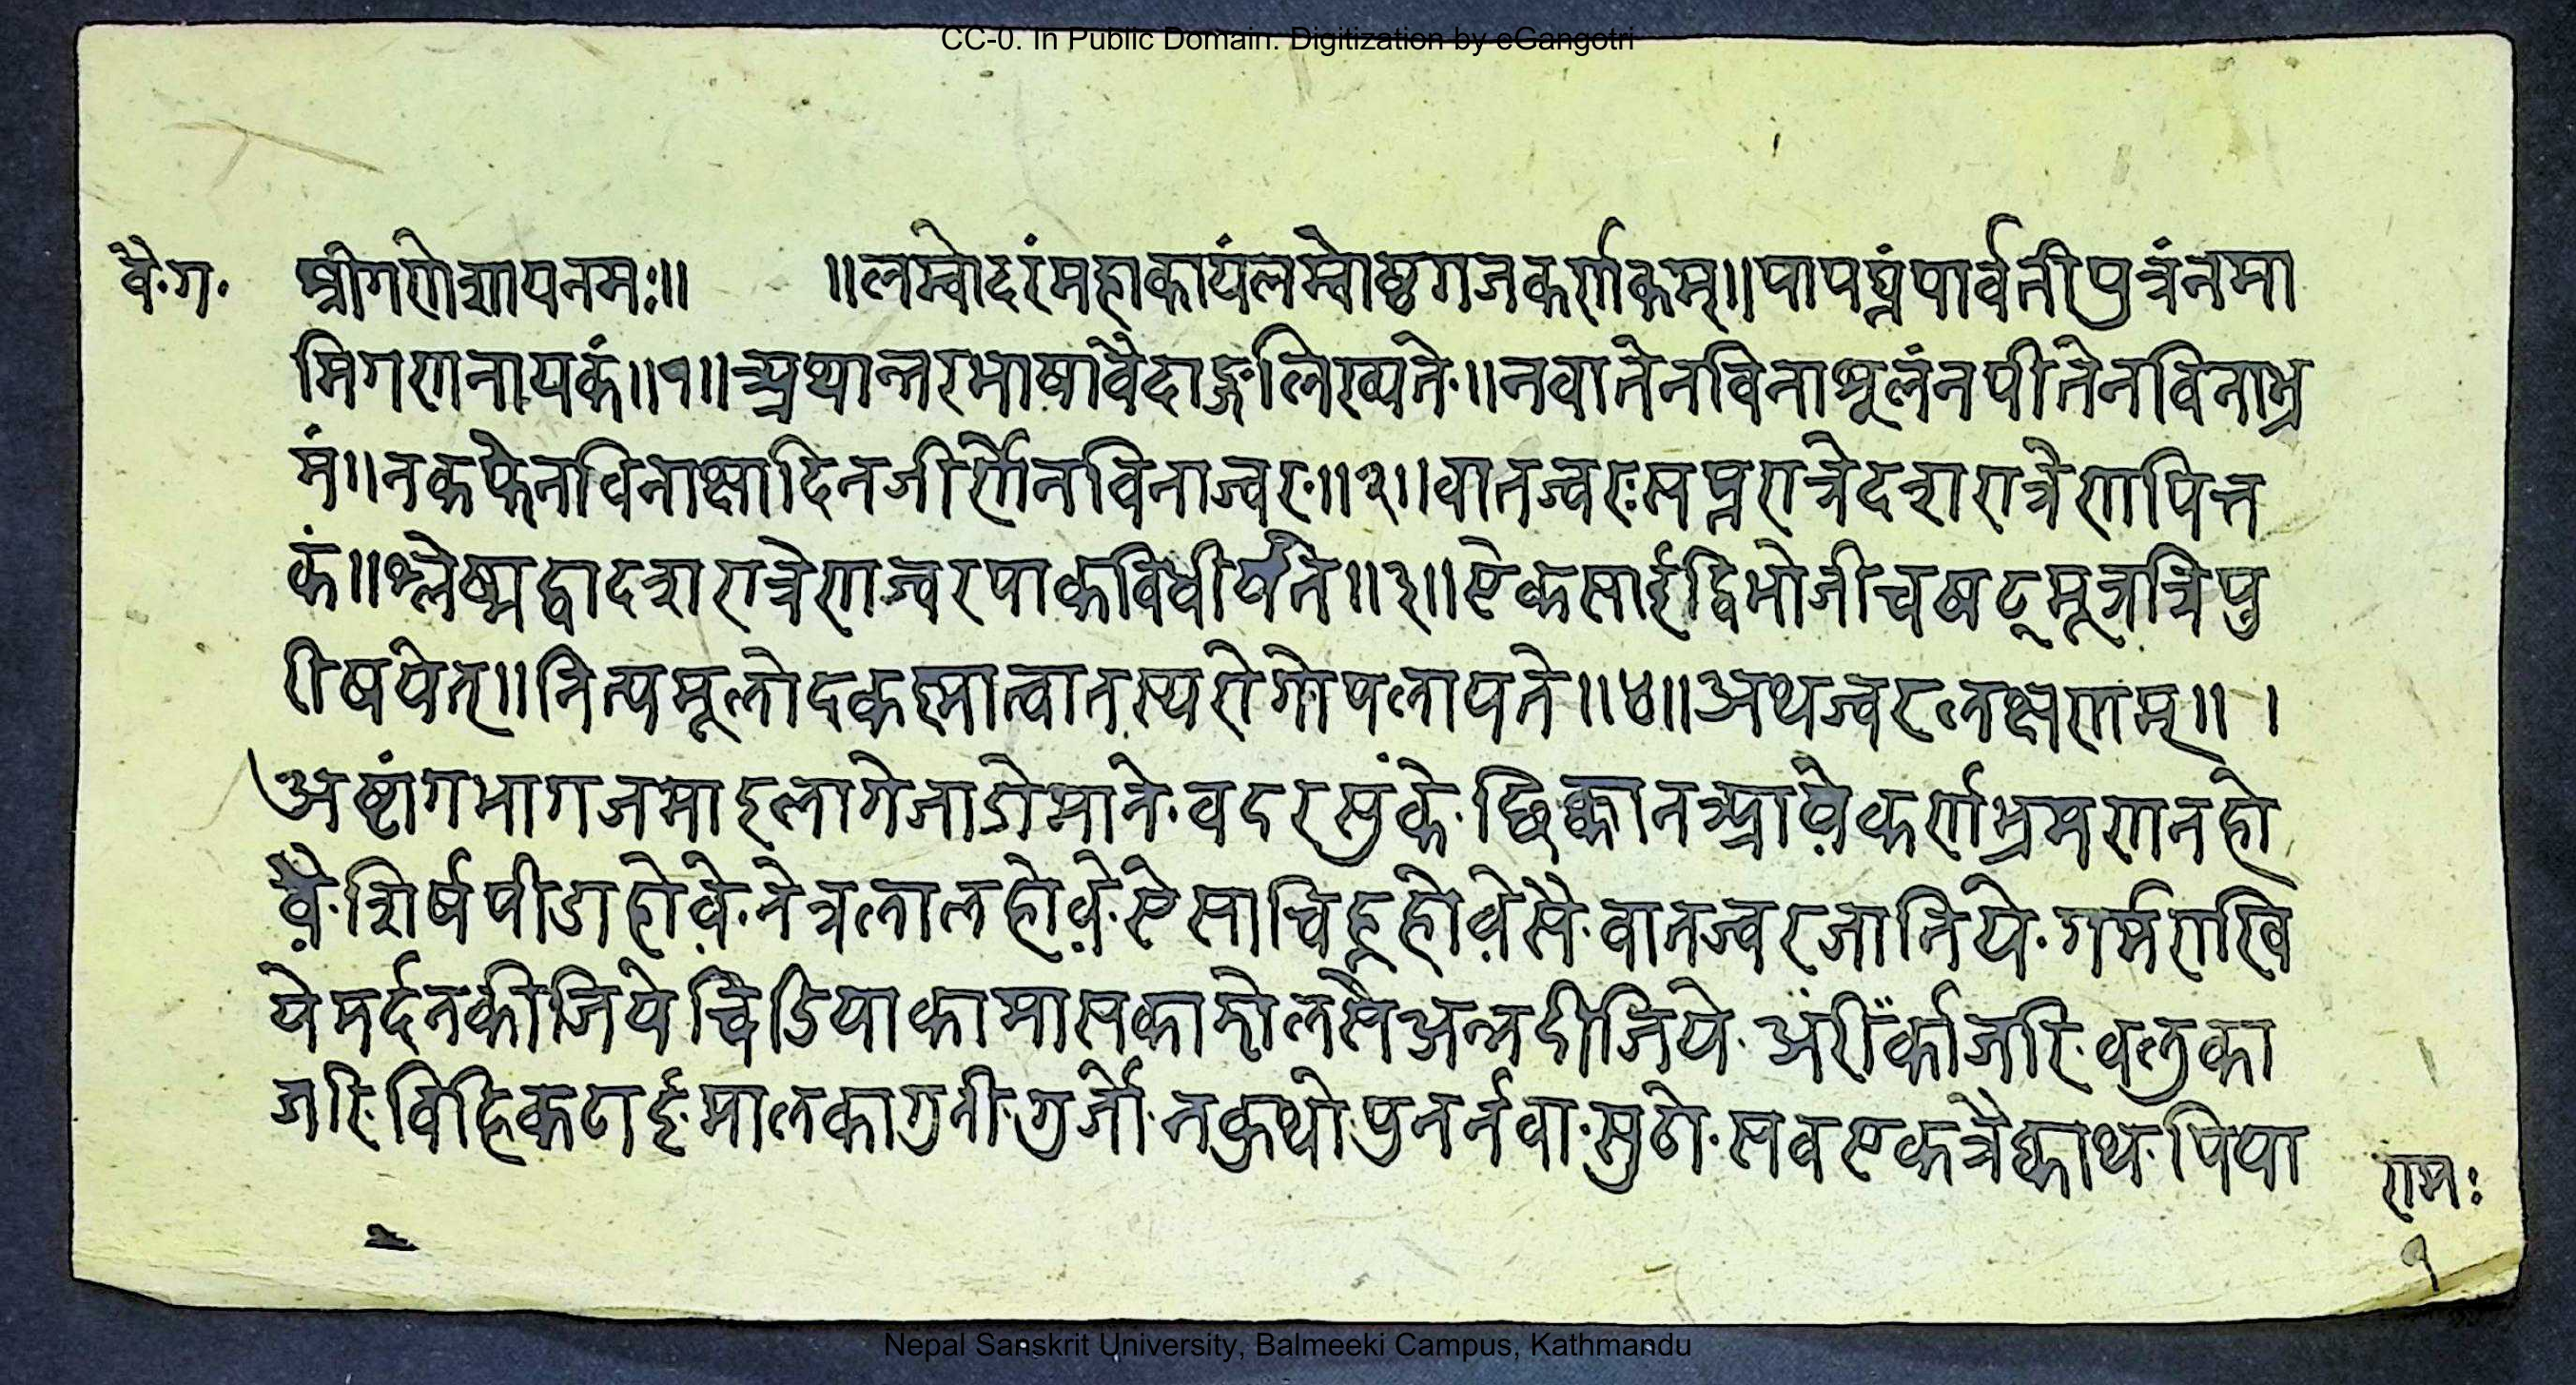 CC-0. In Public Domain. Digitization by eGangotri
वै॰ग॰ श्रीगणेशायनमः॥ ॥लम्वोदरंमहाकायंलम्वोष्ठगजकर्णकम्॥पापघ्नंपार्वतीपुत्रंनमा
मिगणनायकं॥१॥अथान्तरभाषावैदाङ्गलिख्यते॥नवातेनविनाशूलंनपीतेनविनाभ्र
मं॥नकफेनविनाक्षादिनजीर्णेनविनाज्वर॥२॥वातज्वरःसप्तरात्रेदशरात्रेणपित्त
कं॥श्लेष्मद्वादशरात्रेणज्वरपाकविधीर्षते॥३॥ऐकसार्द्रद्विभोजीचषट्मूत्रत्रिपु
रीषयेत्॥नित्यमूलोदकस्नात्वातस्यरोगोपलायते॥४॥अथज्वरलक्षणम्॥।
अष्टांगभागजमाइलागेजाडोमाने॰वदरसुंके॰छिक्कानआवे़कर्णभ्रमणनहो
वै़॰शिर्षपीडाहोवे़॰नेत्रलालहोवे़॰ऐसाचिह्नहोवे़सै॰वातज्वरजानिये॰गर्मराखि
येमर्दनकीजियेचिडियाकामासकाझोलसैअन्नदीजिये॰अंरीँकाजरि॰वलुका
जरि॰विहिकटाई॰मालकागुनी॰गुर्जो॰नक्रथो॰पुनर्नवा॰सुठो॰सवएकत्रैक्वाथ॰पिया
रामः
१
Nepal Sanskrit University, Balmeeki Campus, Kathmandu